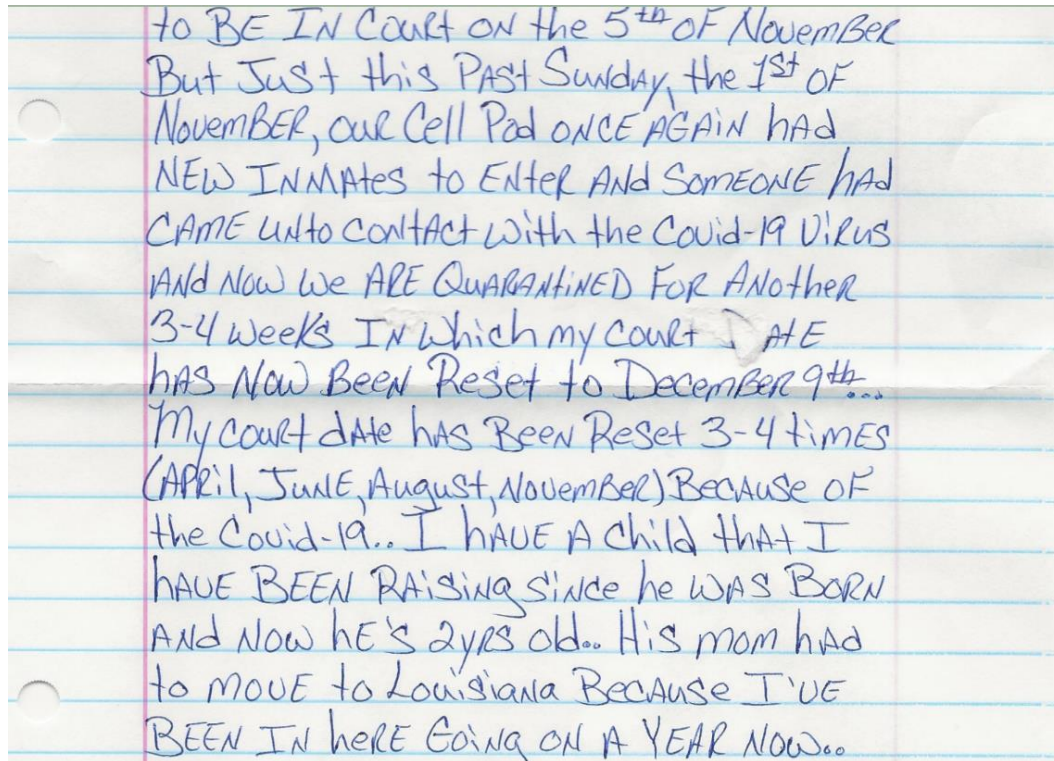 to BE IN COURt ON the 5th OF NovemBER
But Just this PASt SundAy, the 1st OF
NovemBER, our Cell Pod ONCE AGAiN hAd
NEW INMAtes to ENtER ANd SOMEONE hAd
CAME UNto CONtACt With the Covid-19 ViRus
ANd NOW We ARE QuARANtiNED FOR ANother
3-4 WeekS IN Which my COURt DAtE
hAS NOW BeeN Reset to DecemBER 9th...
My couRt dAte hAS BeeN Reset 3-4 timES
(APRil, JuNE, August, NovemBer) BecAuse OF
the Covid-19.. I hAVE A Child thAt I
hAVE BEEN RAiSing SiNce he WAS BORN
ANd NOW hE'S 2yRS old.. His mom hAd
to MOVE to Louisiana BecAuse I'VE
BEEN IN heRE GoiNg ON A YEAR NOW..